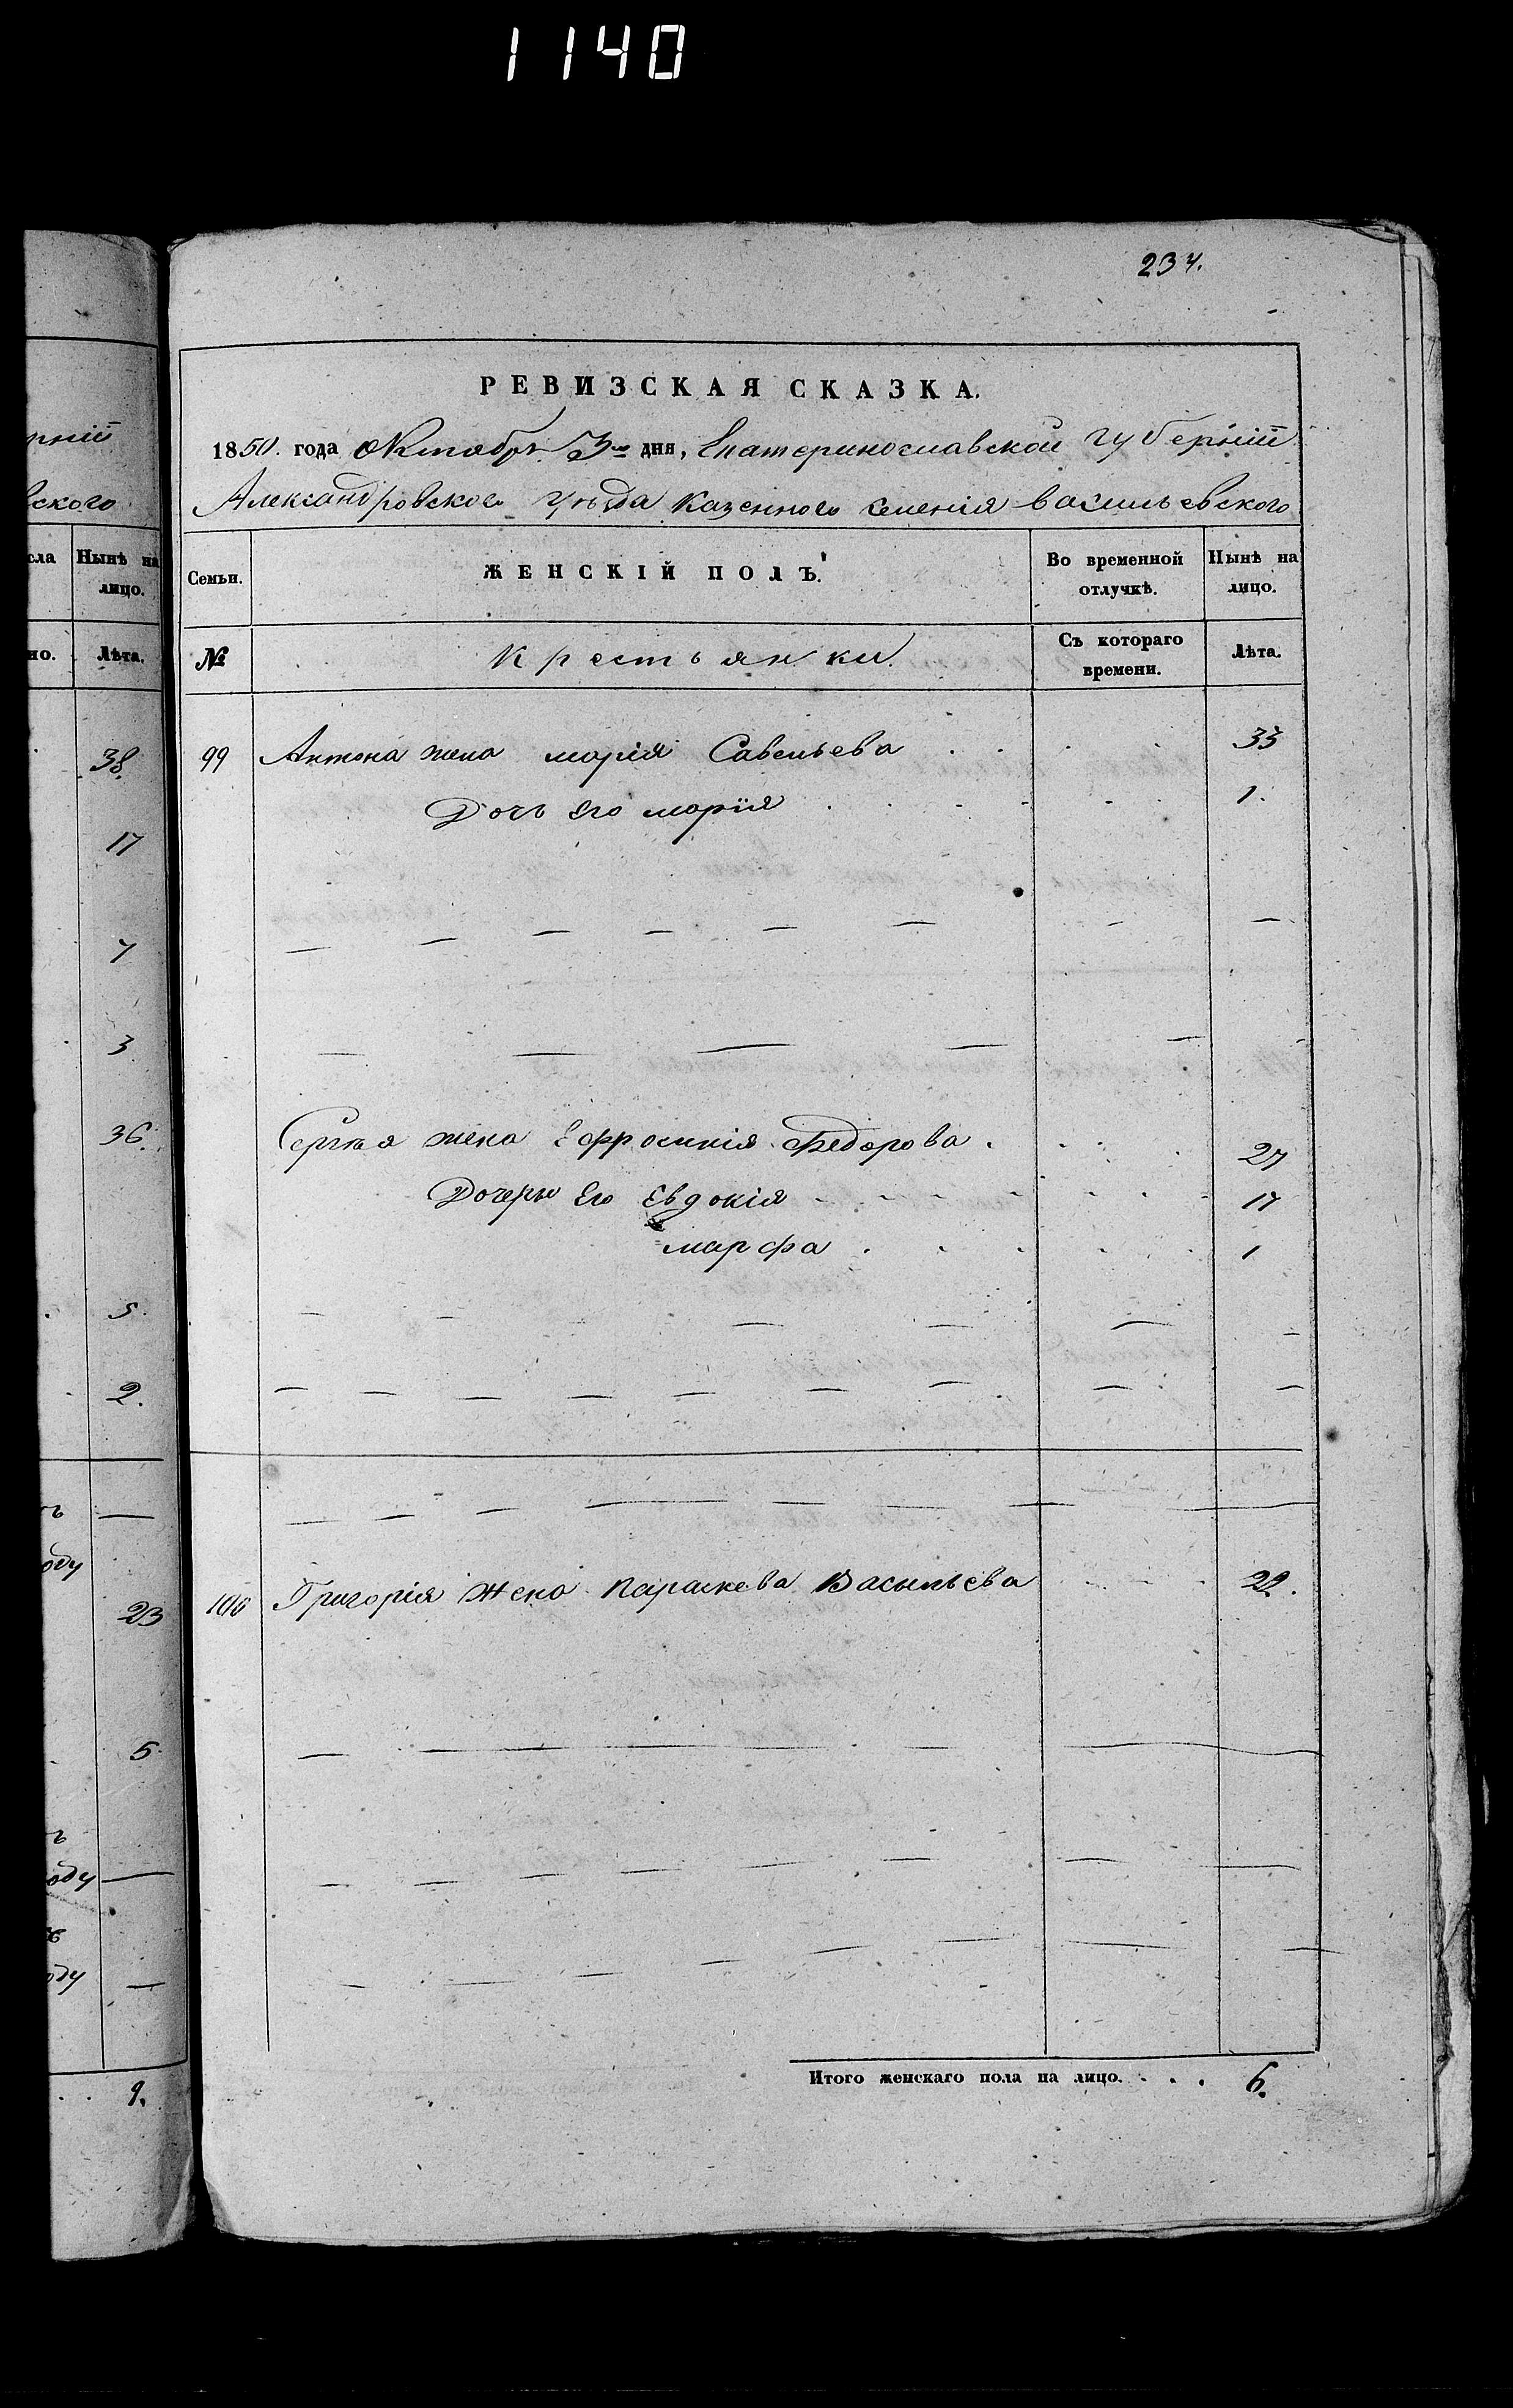 1140
234.
РЕВИЗСКАЯ СКАЗКА.
1850. года Октября 3го дня, Екатеринославской губерніи
Александровского уѣзда Казенного Селенія васильевского
Семьи. ЖЕНСКІЙ ПОЛЪ. Во временной отлучкѣ. Нынѣ на лицо.
№ Крестьянки. Съ котораго времени. Лѣта.
99 Антона жена марія Савельева 33
Дочь Его марія 1.
Сергѣя жена Ефросинія Федорова 27
Дочеры Его Евдокія 17
марфа 1
100 Григорія жена параскева Васильева 22.
Итого женскаго пола на лицо. 6.
рніи
вского
сла Нынѣ на лицо.
но. Лѣта.
38.
17
7
3
36.
5.
2.
ъ
оду
23
5.
ъ
оду
оду
9.